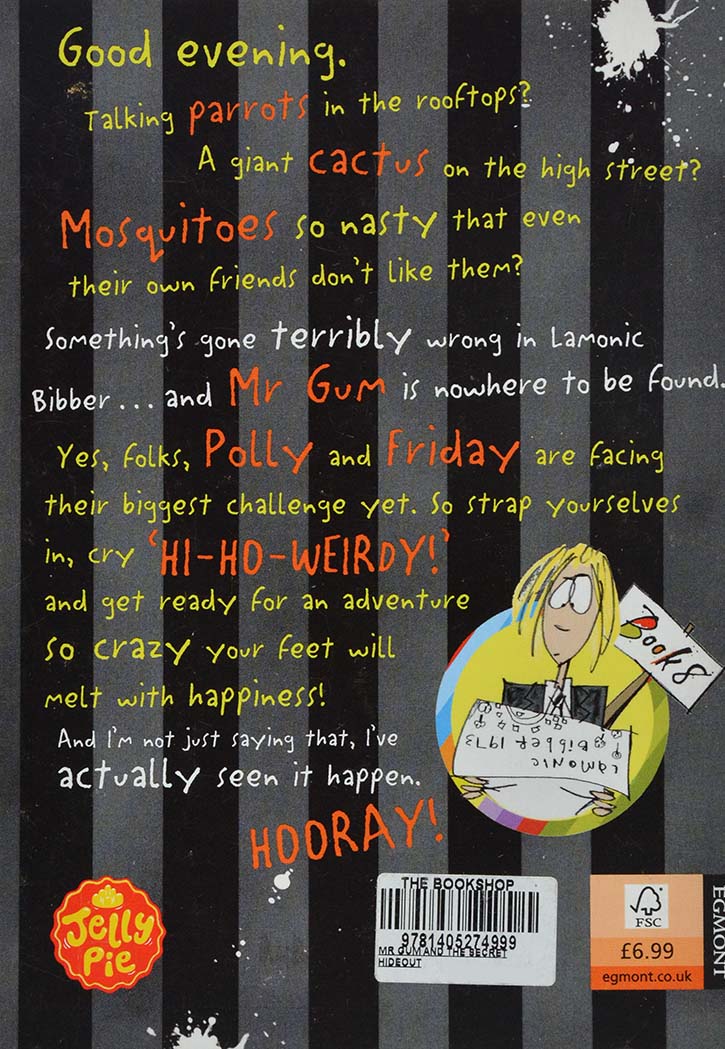 Good evening.
Talking parrots in the rooftops?
A giant cactus on the high street?
Mosquitoes so nasty that even
their own friends don't like them?
Something's gone terribly wrong in Lamonic
Bibber... and Mr Gum is nowhere to be found.
Yes, folks, Polly and Friday are facing
their biggest challenge yet. So strap yourselves
in, cry 'HI-HO-WEIRDY!'
and get ready for an adventure
so crazy your feet will
melt with happiness!
And I'm not just saying that, I've
actually seen it happen.
HOORAY!
Books
LAMONIC
BIBBER 1973
Jelly
Pie
THE BOOKSHOP
9781405274999
MR GUM AND THE SECRET
HIDEOUT
FSC
£6.99
egmont.co.uk
EGMONT